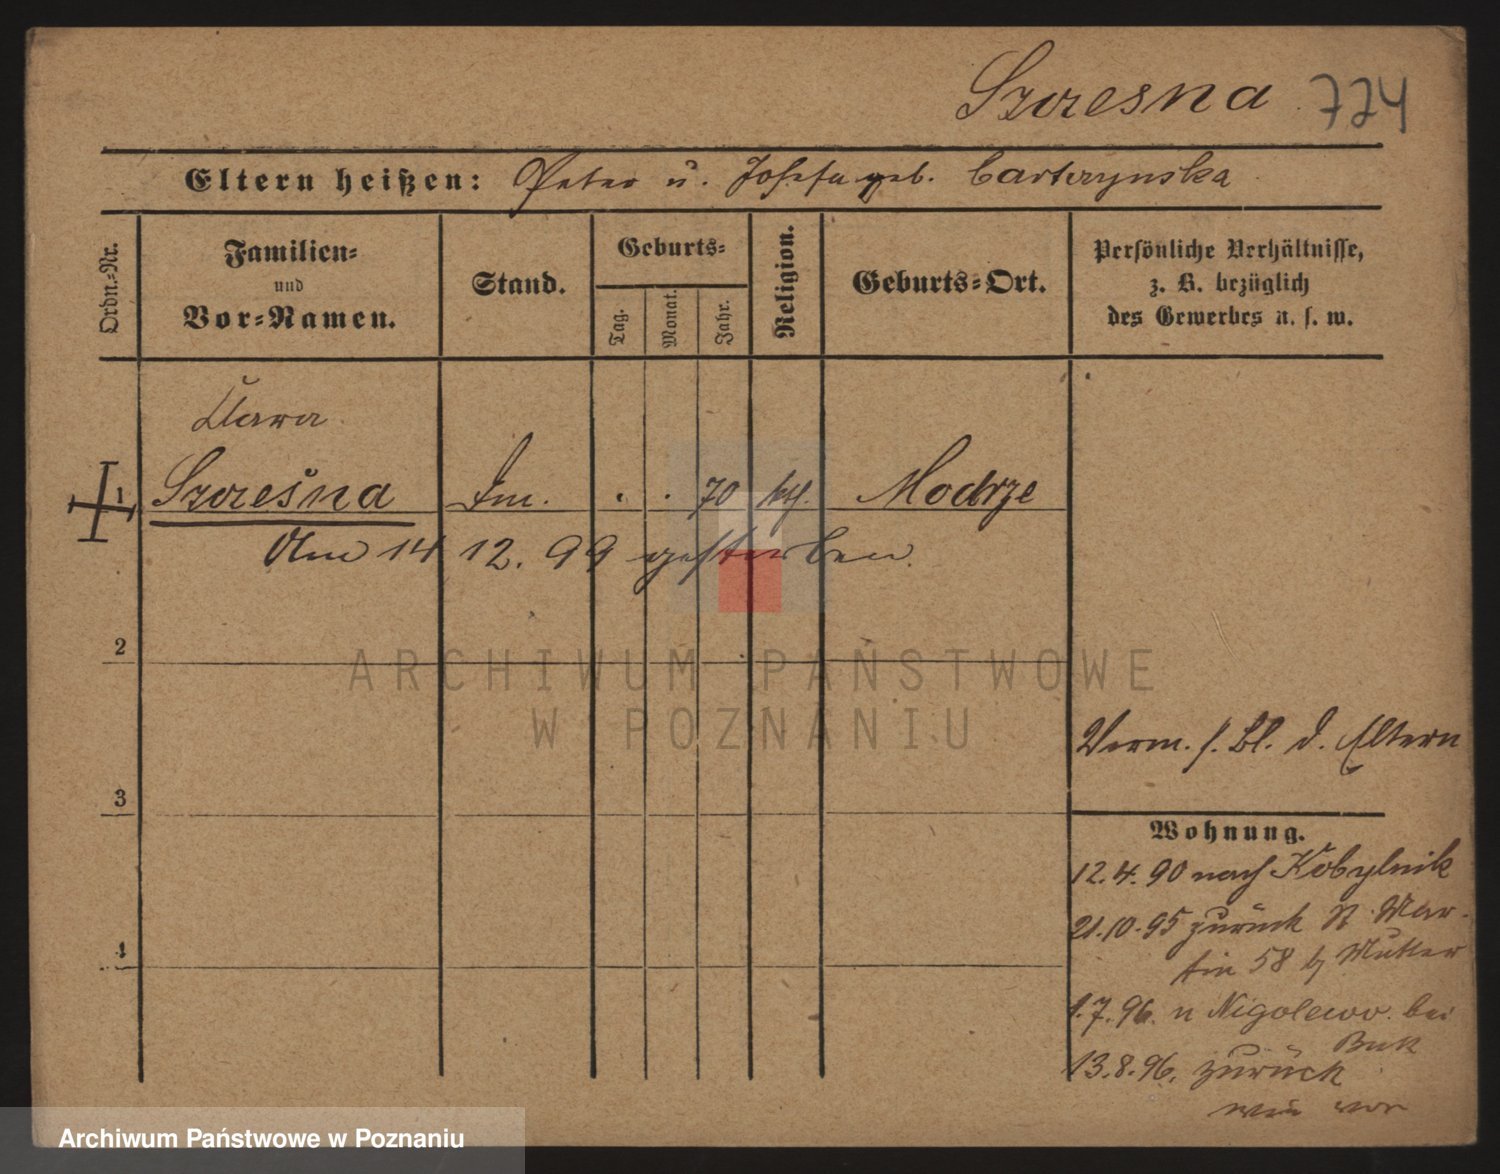 Szczesna 774
Eltern heißen: Peter u. Josefa geb. Bartczynska
Ordn.-Nr.
Familien-
und
Vor-Namen.
Stand.
Geburts-
Tag.
Monat.
Jahr.
Religion.
Geburts-Ort.
Persönliche Verhältnisse,
z. B. bezüglich
des Gewerbes u. s. w.
Clara
1 Szczesna . . 70 kth. Modrze
Am 14 12. 99 gestorben.
2
ARCHIWUM PAŃSTWOWE
W POZNANIU
Verm. s. Bl. d. Eltern
3
Wohnung.
12.4.90 nach Kobylnik
21.10.95 zurück St Mar-
tin 58 b Mutter
4
1.7.96. n Nigolewo. bei
Buk
13.8.96. zurück
wie vor
Archiwum Państwowe w Poznaniu